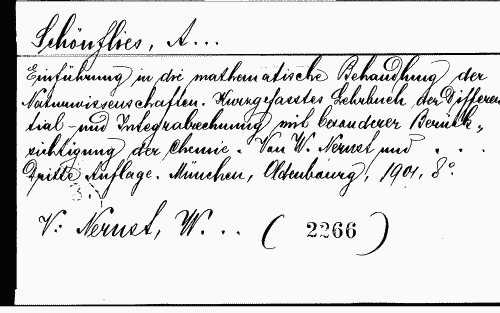 Schönflies, A...
Einführung in die mathematische Behandlung der
Naturwissenschaften. Kurzgefasstes Lehrbuch der Differen
tial- und Integralrechnung mit besonderer Berück-
sichtigung der Chemie. Von W. Nernst und . . . .
Dritte Auflage. München, Oldenbourg, 1901, 8°.
3.
V: Nernst, W. . . ( 2266 )